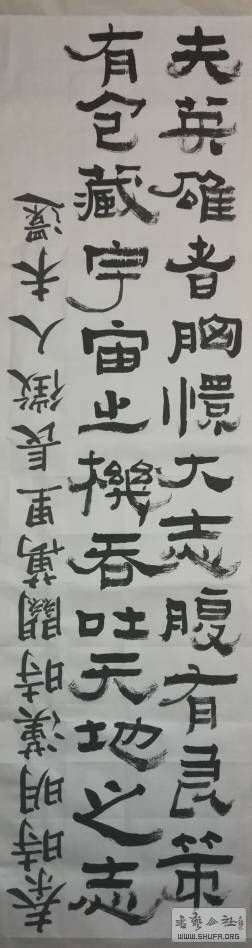 夫英雄者胸懷大志腹有良策
有包藏宇宙之機吞吐天地之志
秦時明漢時關萬里長徵人未還
書藝公社
WWW.SHUFA.ORG